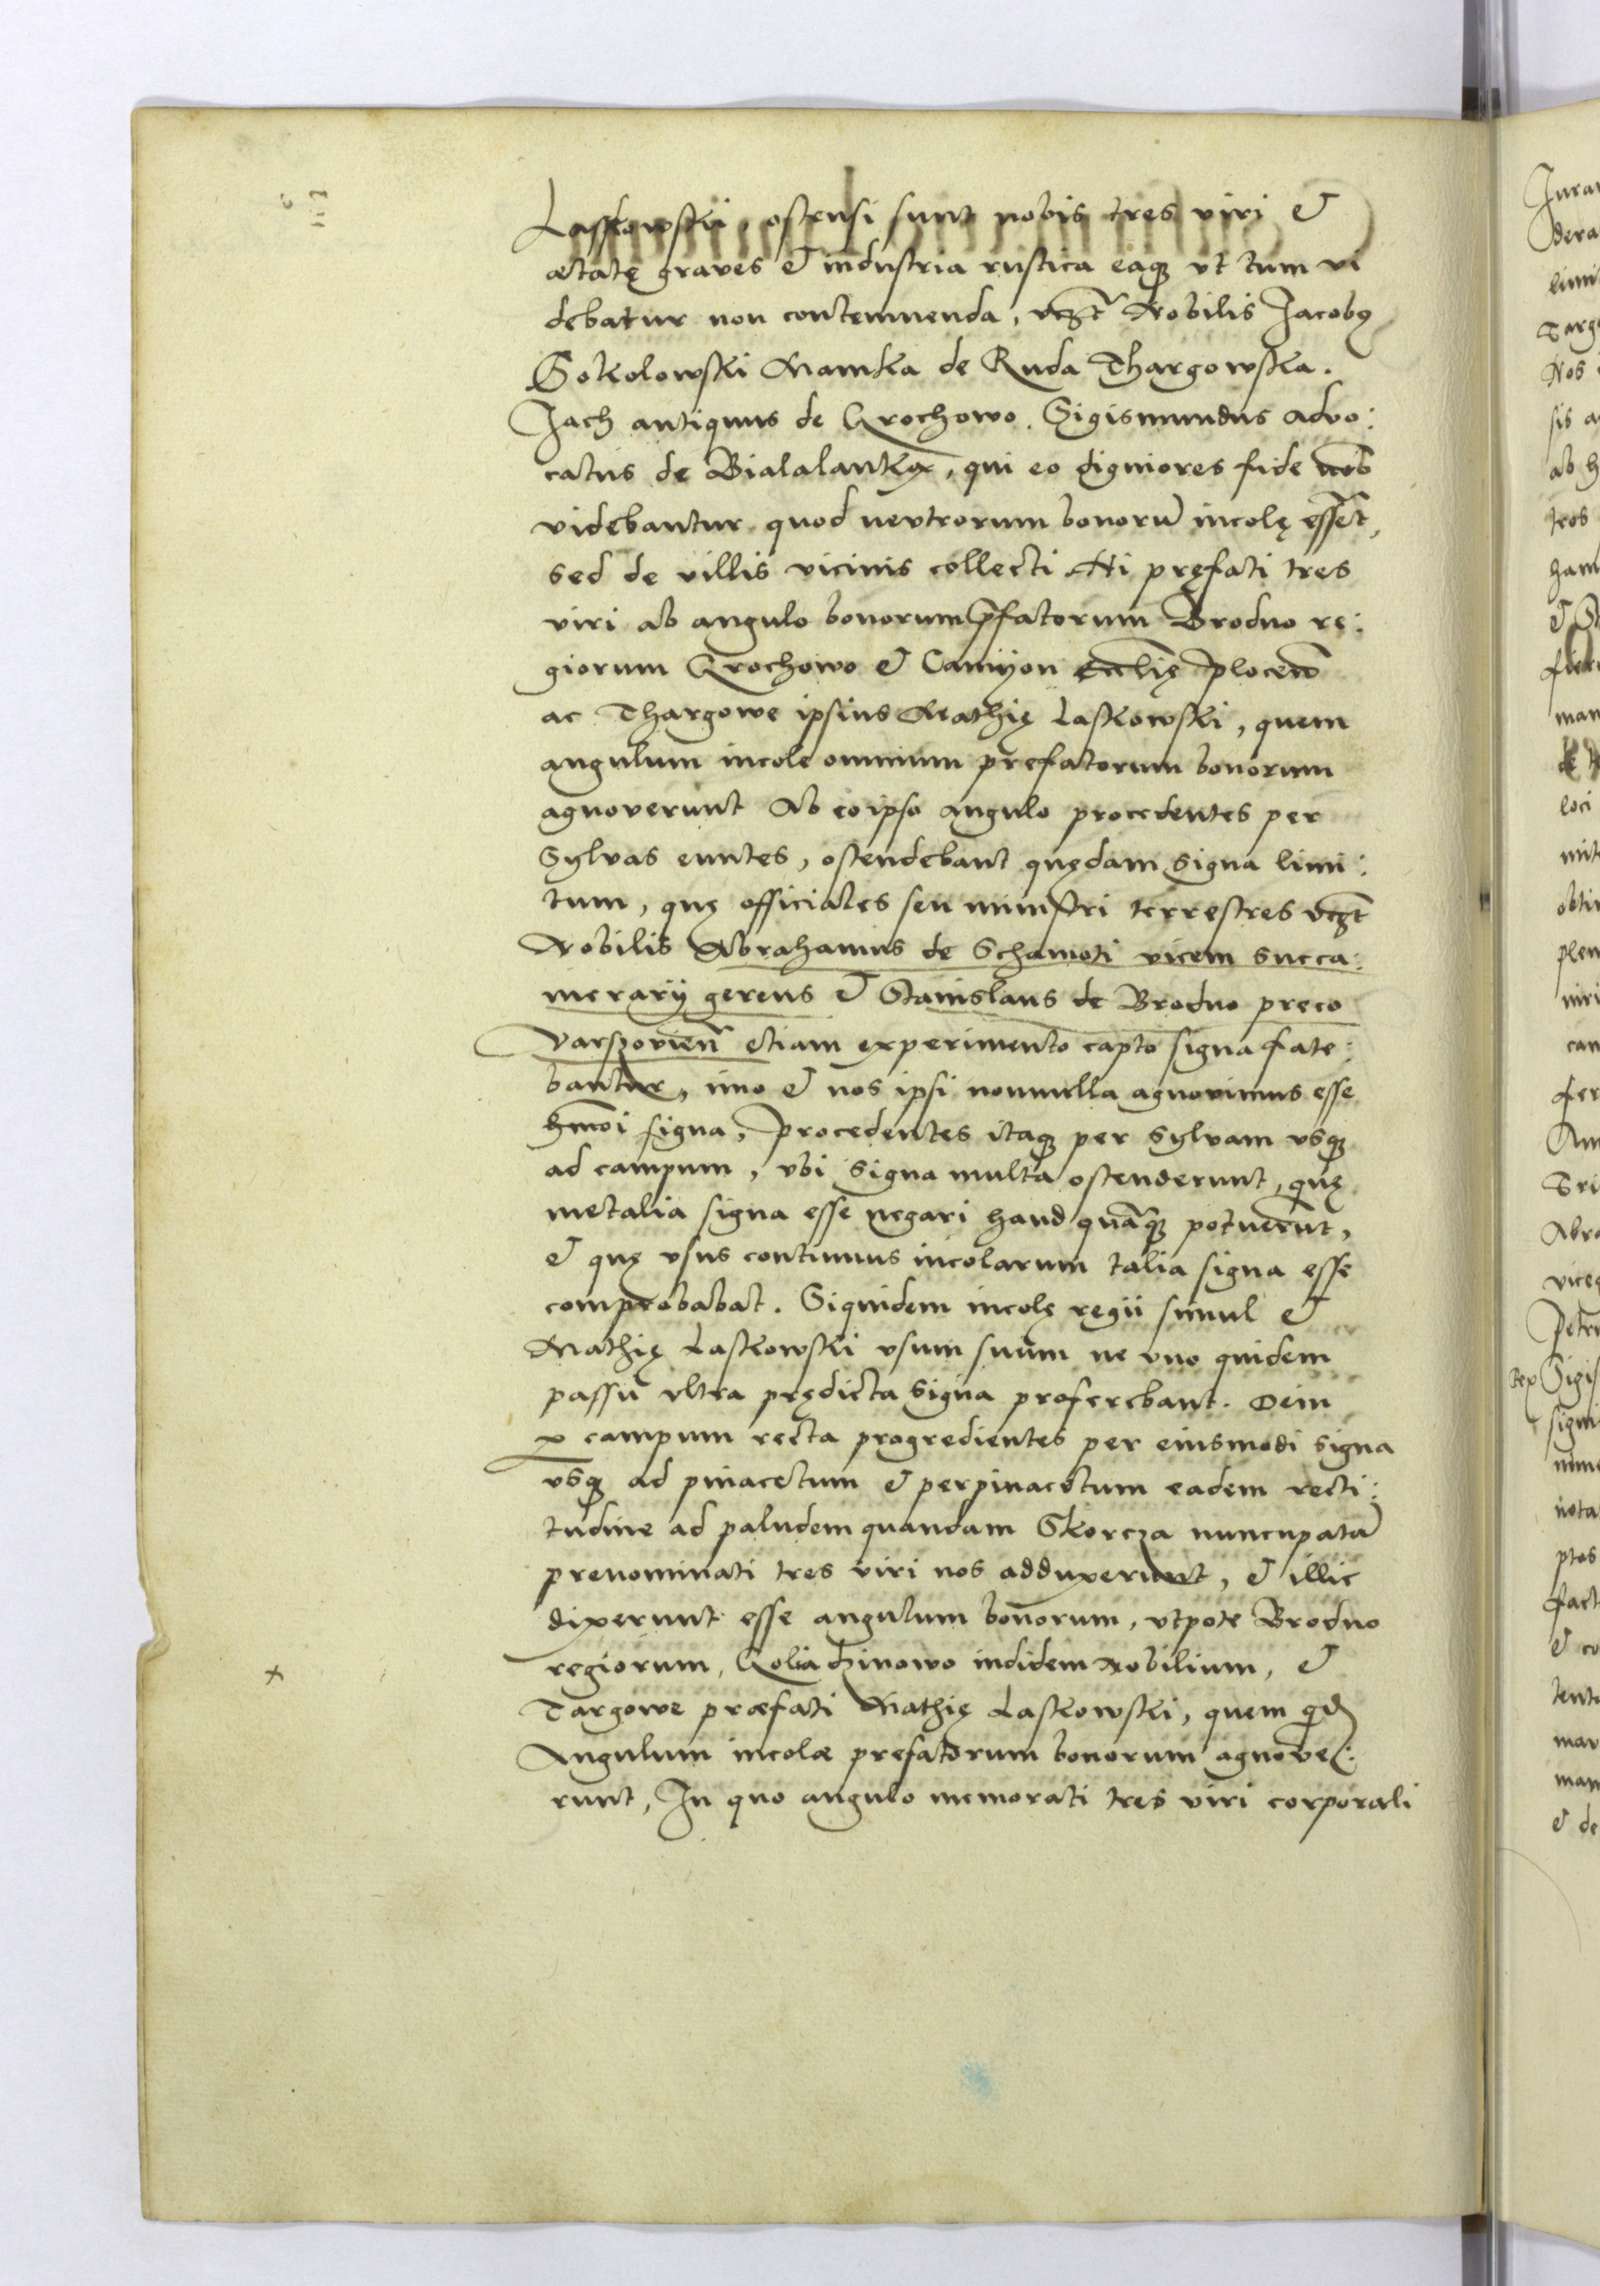 Laskowski, ostensi sunt nobis tres viri &
ætatę graves & industria rustica eaq3 vt tum vi
debatur non contemnenda, vcz̃t Nobilis Jacob9
Sokolowski Mamka de Ruda Thargowska.
Jach antiquus de Grochowo. Sigismundus Advo:
catus de Bialalanka, qui eo digniores fide nob̃
videbantur quod neutrorum bonorũ incolę essẽt,
sed de villis vicinis collecti Hi pręfati tres
viri ab angulo bonorum p̃fatorum Brodno re:
giorum Grochowo & Camyon Ecclię plocen̄
ac Thargowe ipsius Mathię Laskowski, quem
angulum incole omnium prefatorum bonorum
agnoverunt Ab eo ipso angulo procedentes per
Sylvas euntes, ostendebant quędam signa limi:
tum, quę officiales seu ministri terrestres vcz̃t
Nobilis Abrahamus de Schamoti vicem succa:
merarij gerens & Stanislaus de Brodno preco
varszovien̄ etiam experimento capto signa fate:
bantur, imo & nos ipsi nonnulla agnovimus esse
hm̃oi signa, Procedentes itaq3 per sylvam vsq3
ad campum, vbi signa multa ostenderunt, quę
metalia signa esse negari haud quãq3 potuerũt,
& quę vsus continuus incolarum talia signa esse
comprobabat. Siquidem incolę regii simul &
Mathię Laskowski vsum suum ne vno quidem
passu vltra prędicta signa proferebant. Dein
p campum recta progredientes per eiusmodi signa
vsq3 ad pinacetum & per pinacetum eadem recti:
tudine ad paludem quandam Skorcza nuncupatã
prenominati tres viri nos adduxerunt, & illic
dixerunt esse angulum bonorum, vtpote Brodno
regiorum, Goliadzinowo indidem Nobilium, &
Targowe præfati Mathię Laskowski, quem qd̃
Angulum incolæ prefatorum bonorum agnove:
runt, In quo angulo memorati tres viri corporali